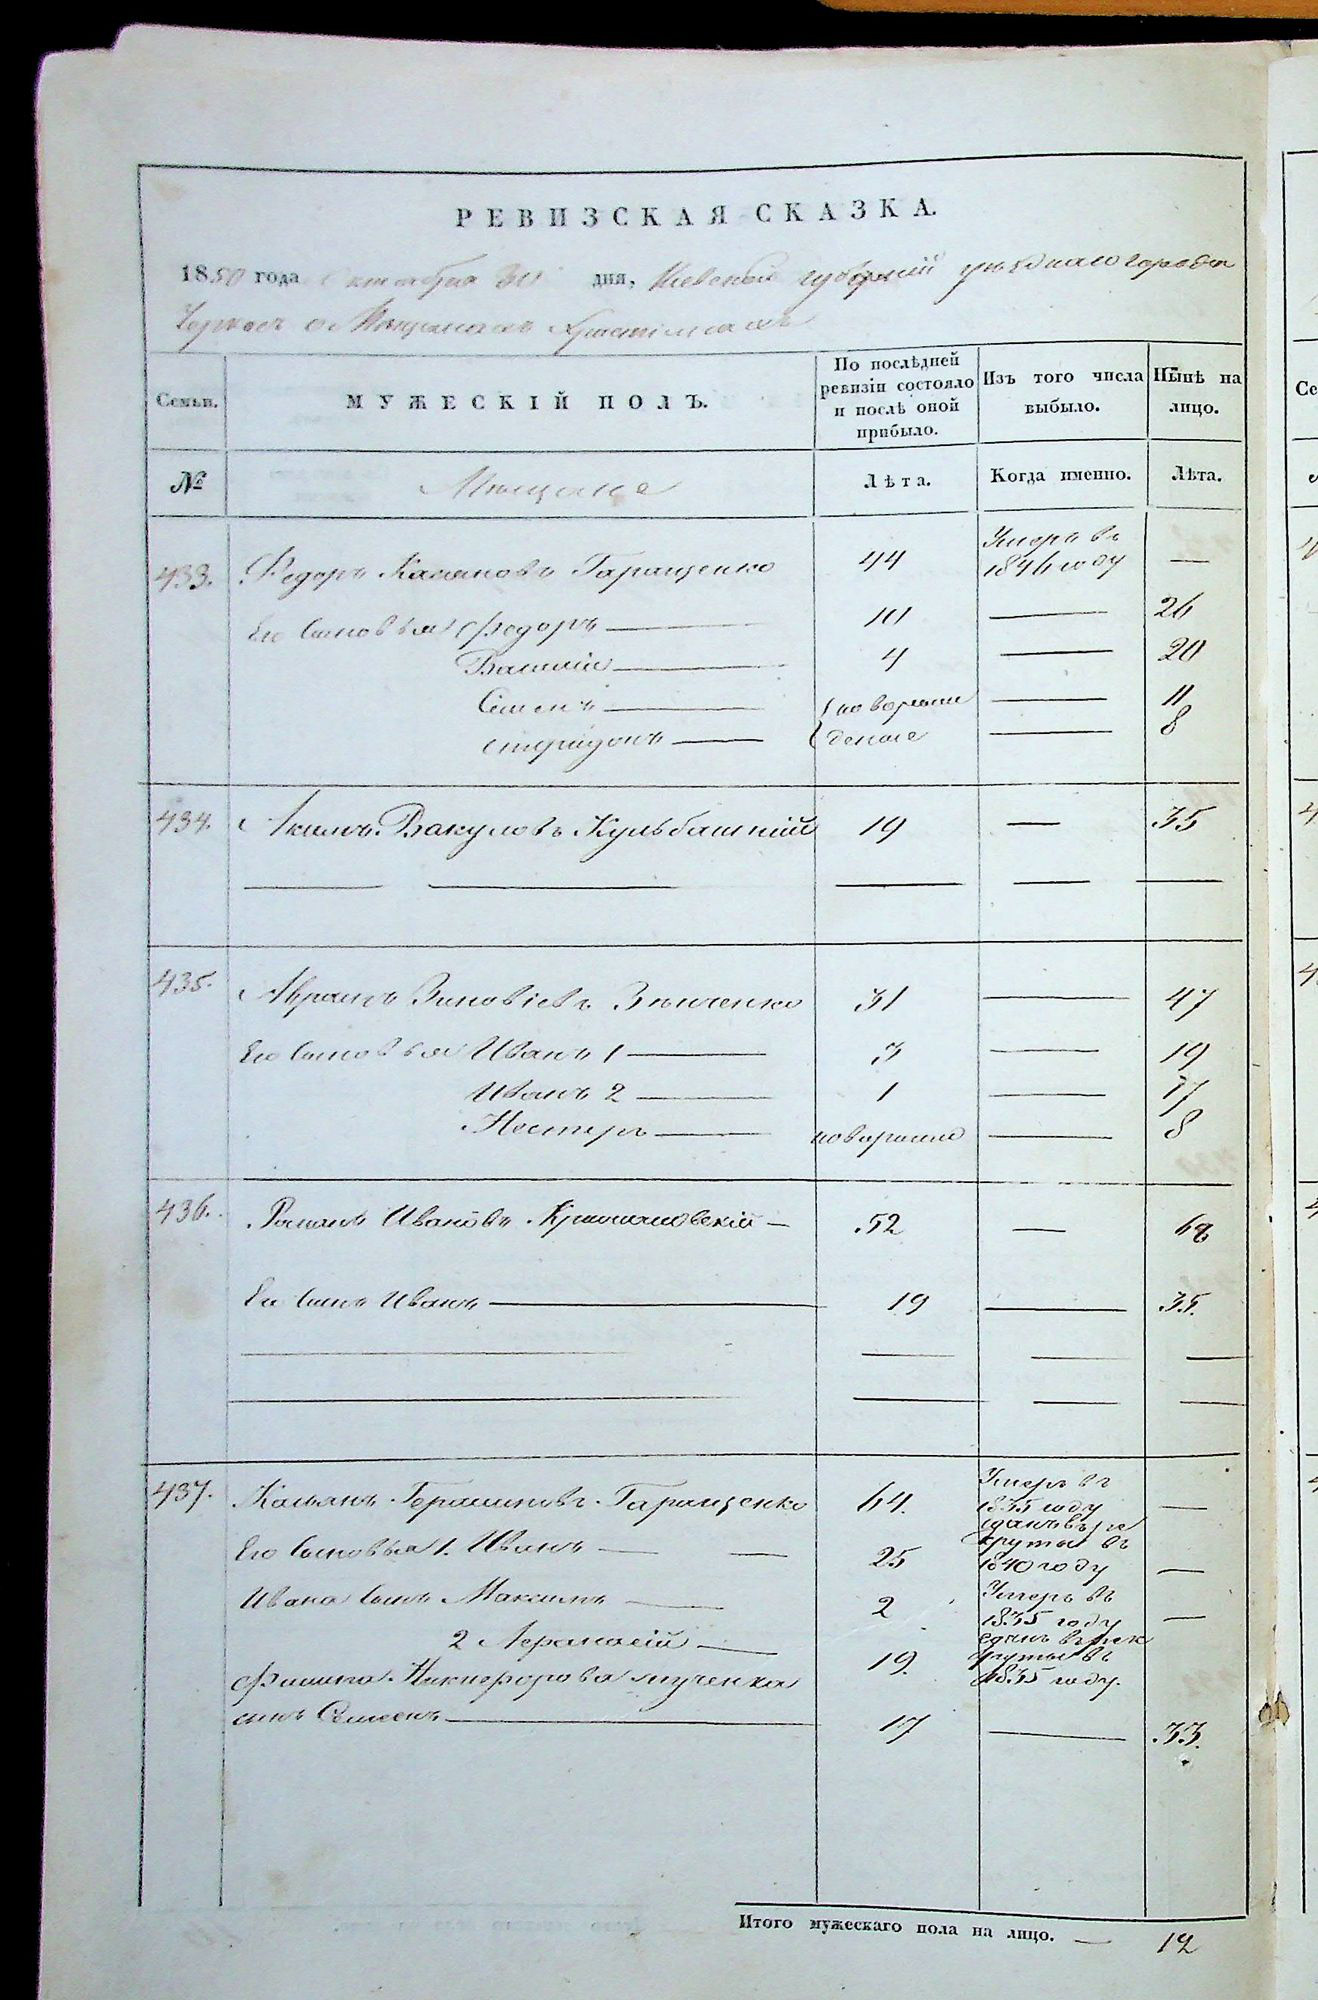 РЕВИЗСКАЯ СКАЗКА.
1850 года Октября 30 дня, Киевской губерніи уѣзднаго города
Черкасъ о Мѣщанахъ Христіянахъ
Семьи. МУЖЕСКІЙ ПОЛЪ. По послѣдней ревизіи состояло и послѣ оной прибыло. Изъ того числа выбыло. Нынѣ на лицо.
№ Мѣщане Лѣта. Когда именно. Лѣта.
433. Федоръ Касяновъ Гаращенко 44 Умеръ въ 1846 году —
Его Сыновья Федоръ — 10 — 26
Василій — 4 — 20
Семенъ — новорож — 11
Спиридонъ — деные — 8
434. Акимъ Вакуловъ Кульбашний 19 — 35
435. Аврамъ Зиновіевъ Зѣнченко 31 — 47
Его Сыновья Иванъ 1 — 3 — 19
Иванъ 2 — 1 — 17
Нестеръ — новорожд — 8
436. Романъ Ивановъ — 52 — 68
Его Сынъ Иванъ — 19 — 35.
437. Касьянъ Герасимовъ Гаращенко 64. Умеръ въ 1835 году —
Его Сыновья 1. Иванъ — — 25 сданъ въ рекруты въ 1840 году —
Ивана Сынъ Максимъ — 2 Умеръ въ 1835 году —
2 Афанасій — 19. сданъ въ рекруты въ 1835 году.
Филипа Никифорова
сынъ Семенъ — 17 — 33.
Итого мужескаго пола на лицо. — 12